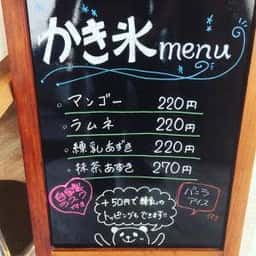 かき氷 menu
○ マンゴー 220円
○ ラムネ 220円
○ 練乳あずき 220円
○ 抹茶あずき 270円
自家製
付き
+50円で練乳の
トッピングもできます!!
バニラ
アイス
付き